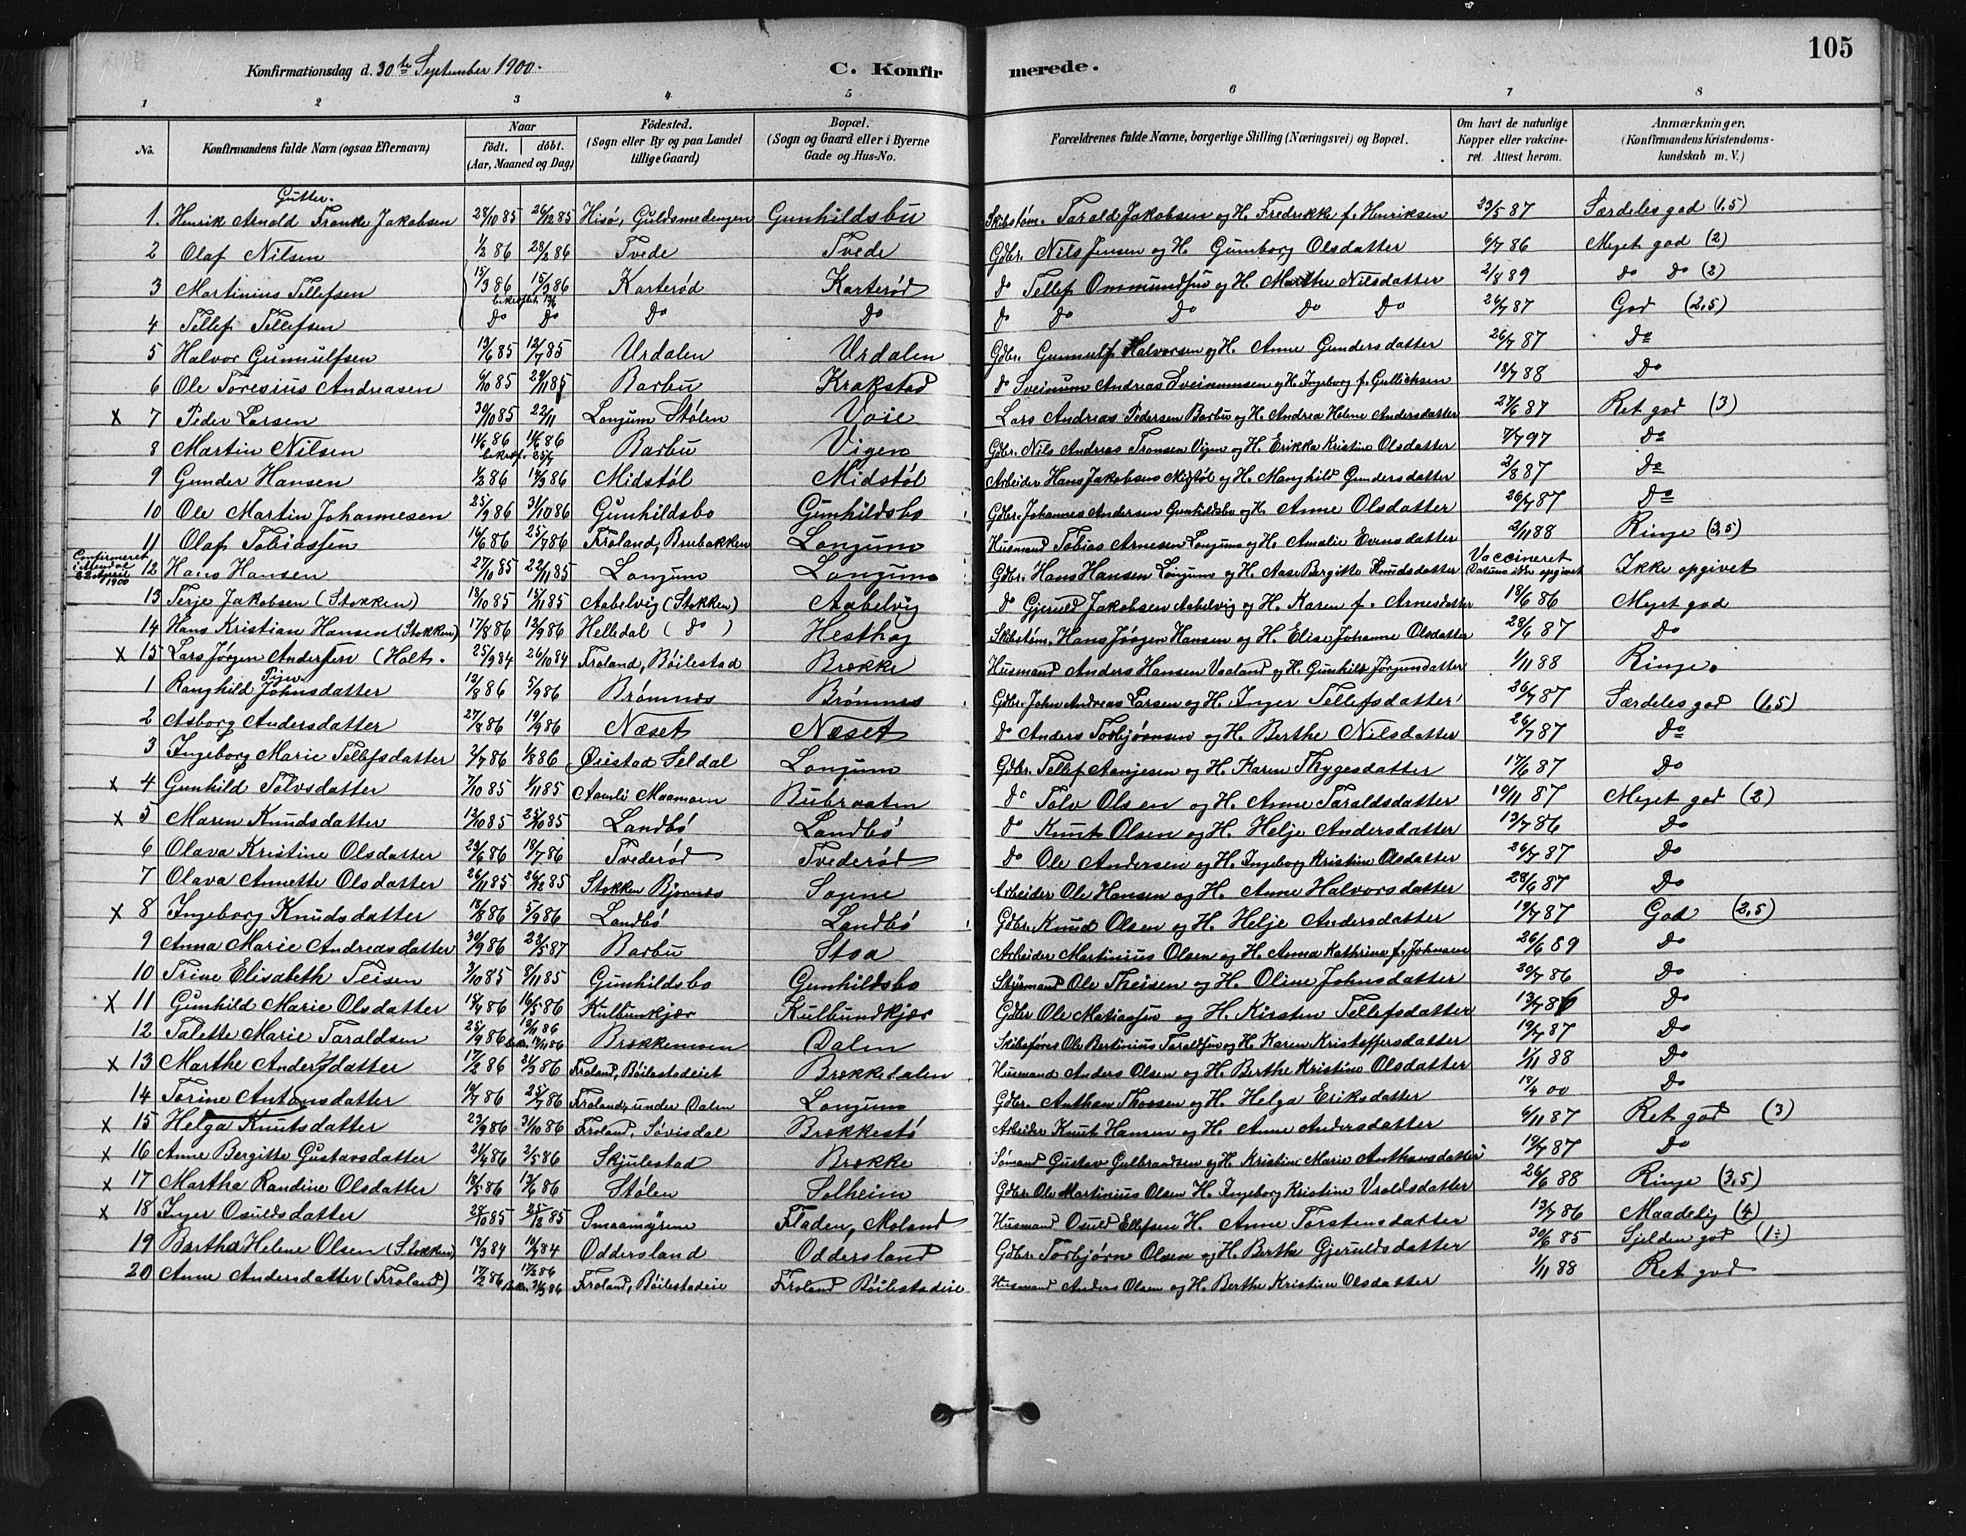 105
Konfirmationsdag d. 30te September 1900. C. Konfirmerede.
1 2 3 4 5 6 7 8
No. Konfirmandens fulde Navn (ogsaa Efternavn) Naar födt. döbt. (Aar, Maaned og Dag) Födested. (Sogn eller By og paa Landet tillige Gaard) Bopæl. (Sogn og Gaard eller i Byerne Gade og Hus-No. Forældrenes fulde Navne, borgerlige Stilling (Næringsvei) og Bopæl. Om havt de naturlige Kopper eller vakcineret. Attest herom. Anmærkninger, (Konfirmandens Kristendomskundskab m. V.)
Gutter.
1. Henrik Arnold Franke Jakobsen 28/10 85 26/12 85 Hisø, Guldsmedengen Gunhildsbu Skibstøm. Tarald Jakobsen og H. Fredrikke f. Henriksen 23/5 87 Særdeles god (1,5)
2 Olaf Nilsen 1/2 86 28/2 86 Tvede Tvede Gdbr. Nils Jensen og H. Gunborg Olsdatter 6/7 86 Meget god (2)
3 Martinius Tellefsen 15/3 86 15/3 86 Karterød Karterød Do Tellef Ommundsen og H. Marthe Nilsdatter 2/8 89 Do Do (2)
4 Tellef Tellefsen Do Do Do Do Do Do Do Do Do 26/7 87 God (2,5)
5 Halvor Gunnulfsen 13/6 85 12/7 85 Urdalen Urdalen Gdbr. Gunnulf Halvorsen og H. Anne Gundersdatter 26/7 87 Do
6 Ole Toresius Andreasen 6/10 85 29/11 85 Barbu Krakstad Do Sveinum Andreas Sveinumsen og H. Ingeborg f. Gullichsen 18/7 88 Do
x 7 Peder Larsen 30/10 85 22/11 Longum Stølen Voie Lars Andreas Pedersen Barbu og H. Andrea Helene Andersdatter 27/6 87 Ret god (3)
8 Martin Nilsen 11/6 86 11/6 86 Barbu Vigen Gdbr. Nils Andreas Tronsen Vigen og H. Erikka Kristine Olsdatter 7/7 97 Do
9 Gunder Hansen 1/2 86 14/3 86 Midstøl Midstøl Arbeider Hans Jakobsen Midstøl og H. Manghild Gundersdatter 2/8 87 Do
10 Ole Martin Johannesen 25/9 86 31/10 86 Gunhildsbo Gunhildsbo Gdbr. Johannes Andersen Gunhildsbo og H. Anne Olsdatter 26/7 87 Do
11 Olaf Tobiassen 16/6 86 25/7 86 Froland, Brubakken Longum Husmand Tobias Arnesen Longum og H. Amalie Evensdatter 2/11 88 Ringe (3,5)
Confirmeret 22 April 1900 12 Hans Hansen 27/10 85 22/11 85 Longum Longum Gdbr. Hans Hansen Longum og H. Aase Bergitte Knudsdatter Vaccineret Datum ikke opgivet Ikke opgivet
13 Terje Jakobsen (Stokken) 13/10 85 15/11 85 Aabelvig (Stokken) Aabelvig Do Gjeruld Jakobsen Aabelvig og H. Karen f. Arnesdatter 18/6 86 Meget god
14 Hans Kristian Hansen (Stokken) 17/8 86 12/9 86 Helledal (Do) Hesthag Skibstøm. Hans Jørgen Hansen og H. Elise Johanne Olsdatter 28/6 87 Do
x 15 Lars Jørgen Andersen (Holt. 25/9 84 26/10 84 Froland, Bøilestad Brekke Husmand Anders Hansen Vaaland og H. Gunhild Jørgensdatter 1/11 88 Ringe.
Piger.
1 Ranghild Johnsdatter 12/8 86 5/9 86 Brømnes Brømnes Gdbr. John Andreas Larsen og H. Inger Tellefsdatter 26/7 87 Særdeles god (1,5)
2 Asborg Andersdatter 27/8 86 19/9 86 Næset Næset Do Anders Torbjørnsen og H. Berthe Nilsdatter 26/7 87 Do
3 Ingeborg Marie Tellefsdatter 2/7 86 1/8 86 Øiestad Seldal Longum Gdbr. Tellef Aanjesen og H. Karen Thygesdatter 17/6 87 Do
x 4 Gunhild Tolvsdatter 7/10 85 1/11 85 Aamli Maamoen Bubraaten Do Tolv Olsen og H. Anne Taraldsdatter 10/11 87 Meget god (2)
x 5 Maren Knudsdatter 12/10 85 25/10 85 Landbø Landbø Do Knut Olsen og H. Helje Andersdatter 13/7 86 Do
6 Olava Kristine Olsdatter 23/6 86 18/7 86 Tvederød Tvederød Do Ole Andersen og H. Ingeborg Kristine Olsdatter 26/7 87 Do
7 Olava Annette Olsdatter 26/11 85 26/12 85 Stokken Bjørnes Sogne Arbeider Ole Hansen og H. Anne Halvorsdatter 28/6 87 Do
x 8 Ingeborg Knudsdatter 18/8 86 5/9 86 Landbø Landbø Gdbr. Knud Olsen og H. Helje Andersdatter 19/7 87 God (2,5)
9 Anna Marie Andreasdatter 30/9 86 29/5 87 Barbu Stoa Arbeider Martinius Olsen og H. Anna Kathrine f. Johnsen 26/6 89 Do
10 Trine Elisabeth Teisen 3/10 85 8/11 85 Gunhildsbo Gunhildsbo Styrmand Ole Theisen og H. Oline Johnsdatter 20/7 86 Do
x 11 Gunhild Marie Olsdatter 18/4 86 16/5 86 Kulbunkjær Kulbundkjær Gdbr Ole Matiassen og H. Kirsten Tellefsdatter 13/7 86 Do
12 Talette Marie Taraldsen 25/9 86 Brekkemoen Dalen Skibsfører Ole Bertinius Taraldsen og H. Karen Kristoffersdatter 19/7 87 Do
x 13 Marthe Andersdatter 17/2 86 21/3 86 Froland, Bøilestadeiet Brekkedalen Husmand Anders Olsen og H. Berthe Kristine Olsdatter 1/11 88 Do
14 Torine Antonsdatter 10/7 86 25/7 86 Froland, under Dalen Longum Gdbr. Anthon Thorsen og H. Helga Eriksdatter 18/4 00 Do
x 15 Helga Knutsdatter 23/9 86 31/10 86 Froland, Søvisdal Brekkestø Arbeider Knut Hansen og H. Anne Andersdatter 6/11 87 Ret god (3)
x 16 Anne Bergitte Gustavsdatter 21/4 86 2/5 86 Skjulestad Brekke Sømand Gustav Gulbrandsen og H. Kristine Marie Anthonsdatter 19/7 87 Do
x 17 Martha Randine Olsdatter 18/5 86 13/6 86 Stølen Solheim Gdbr. Ole Martinius Olsen H. Ingeborg Kristine Vraldsdatter 26/6 88 Ringe (3,5)
x 18 Inger Osuldsdatter 28/10 85 25/12 85 Smaamyrene Fladen, Moland Husmand Osuld Ellefsen H. Anne Torstensdatter 13/7 86 Maadelig (4)
19 Bertha Helene Olsen (Stokken) 18/3 84 14/4 84 Oddersland Oddersland Gdbr. Torbjørn Olsen og H. Berthe Gjeruldsdatter 30/6 85 Sjelden god (1÷)
20 Anne Andersdatter (Froland) 17/2 86 17/2 86 Bekr. 21/3 86 Froland, Bøilestadeie Froland Bøilestadeie Husmand Anders Olsen og H. Berthe Kristine Olsdatter 1/11 88 Ret god